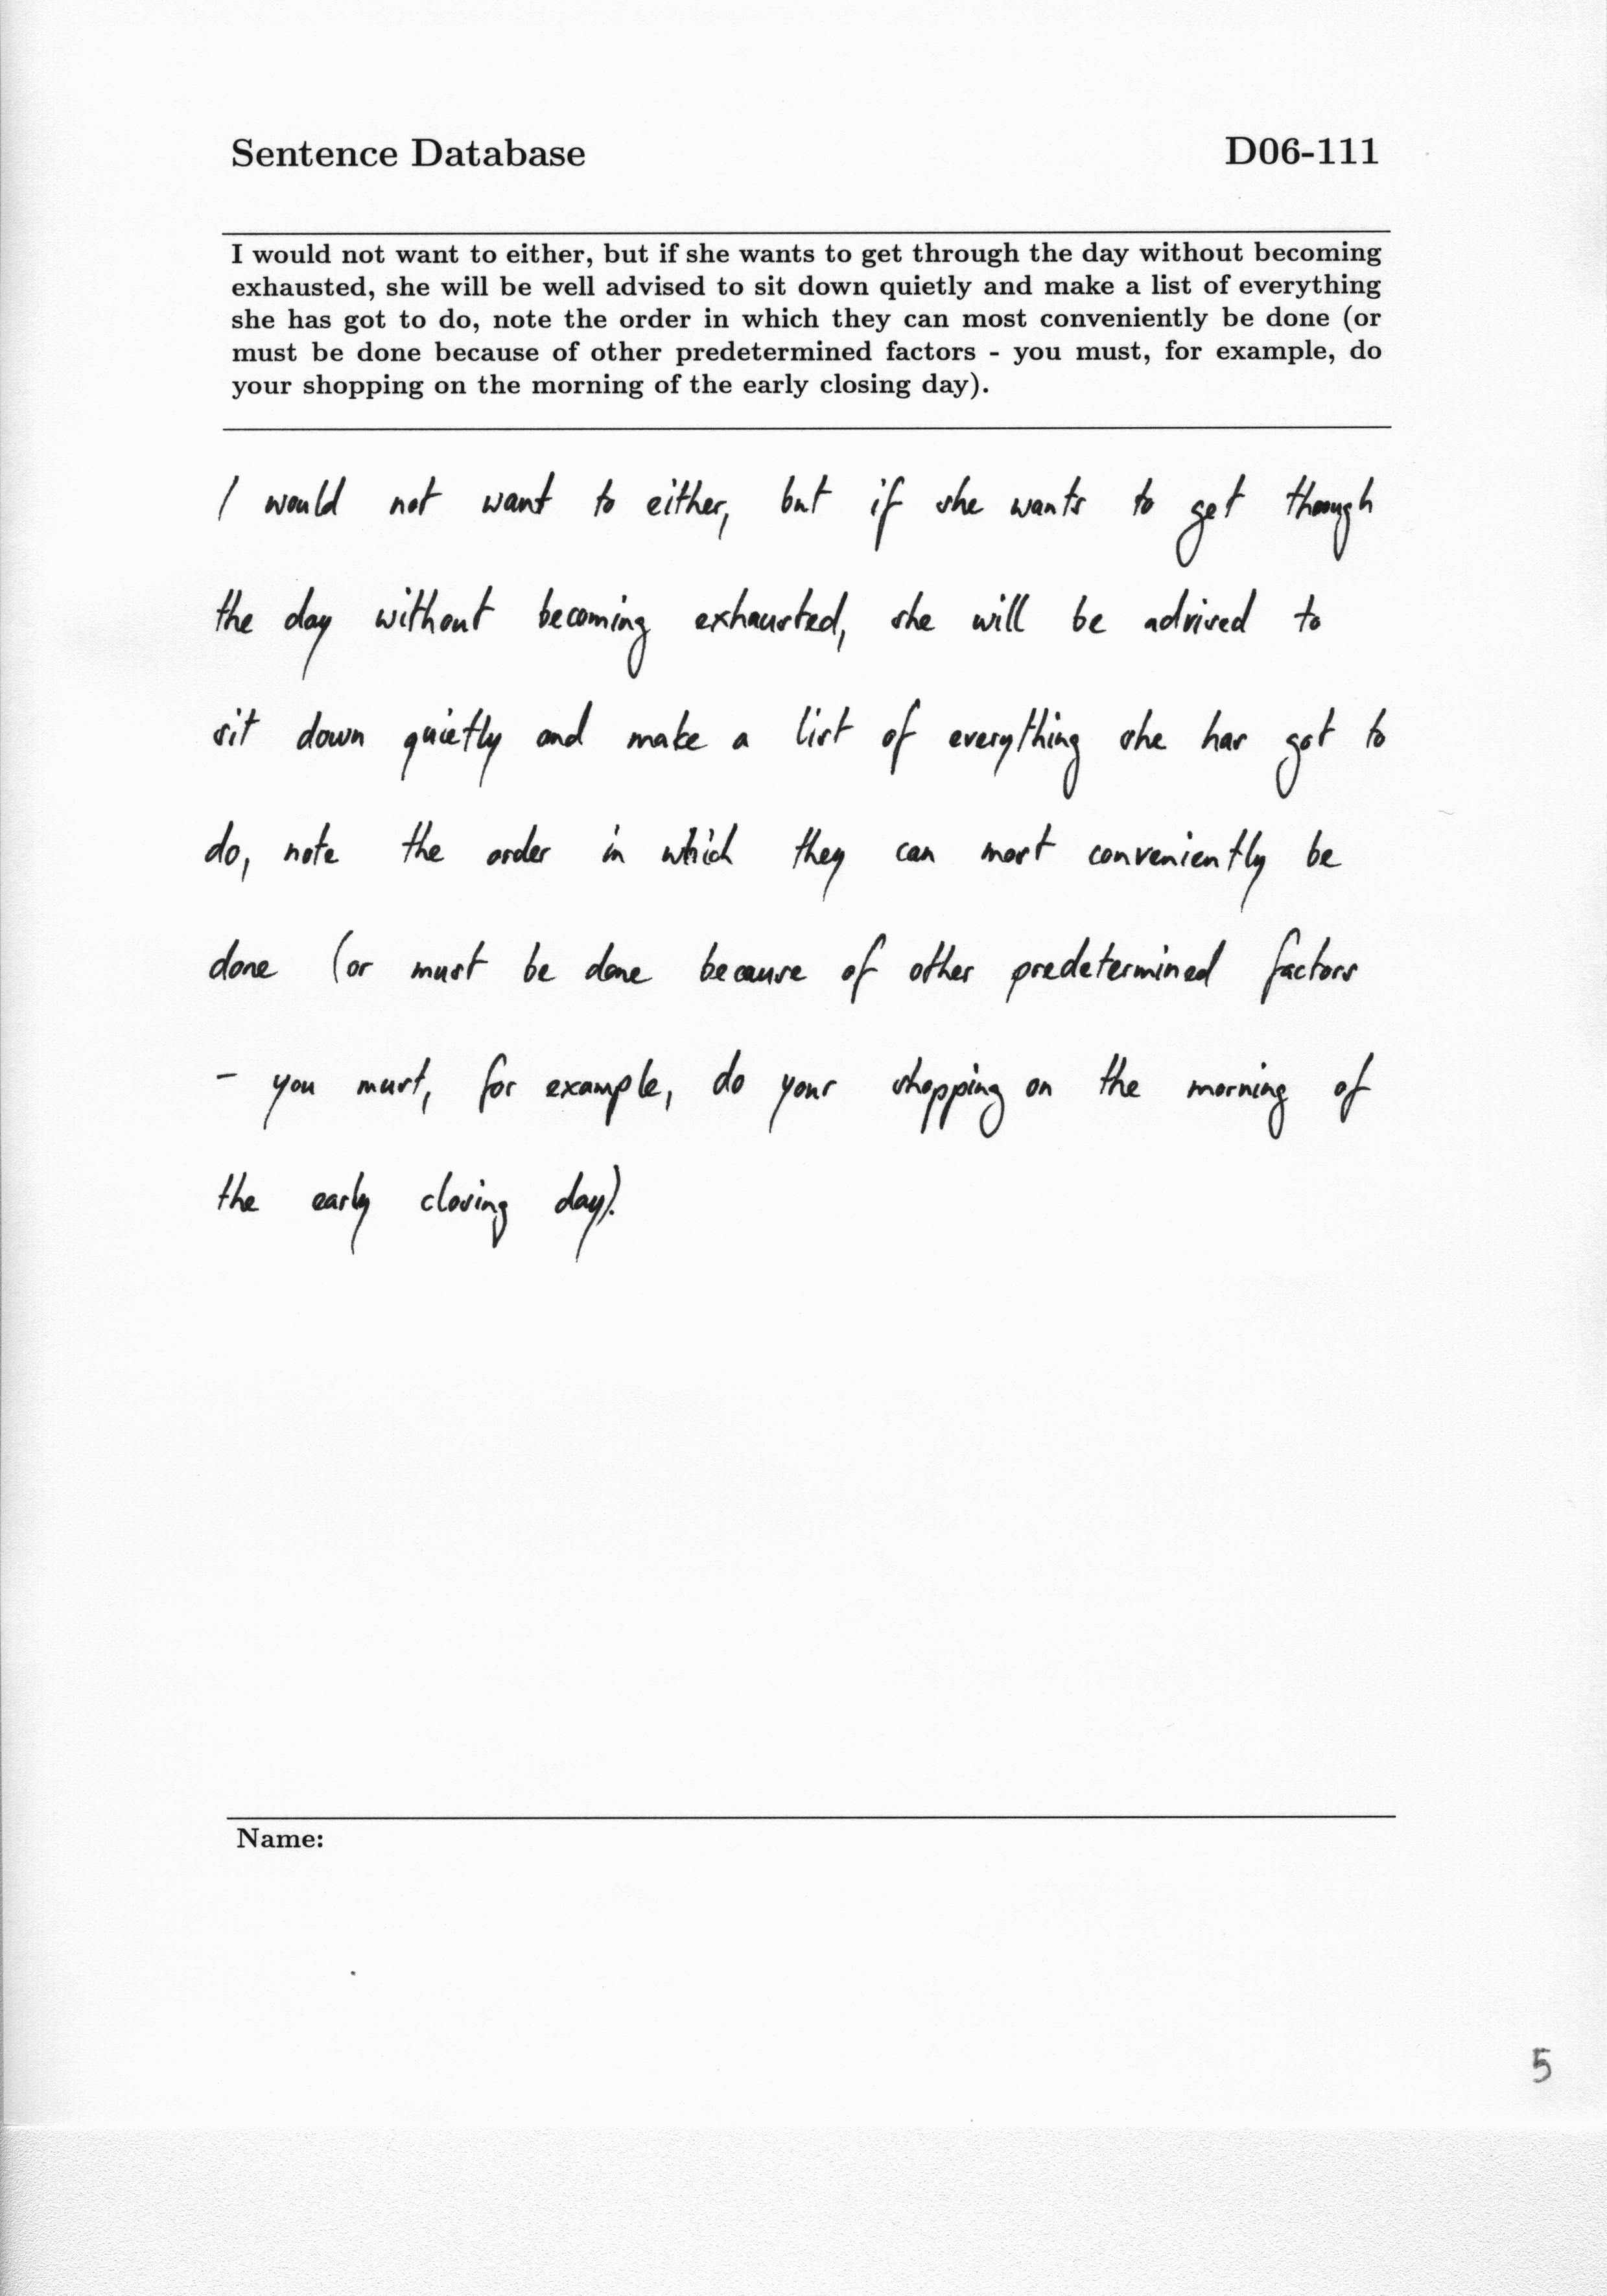 Sentence Database D06-111
I would not want to either, but if she wants to get through the day without becoming
exhausted, she will be well advised to sit down quietly and make a list of everything
she has got to do, note the order in which they can most conveniently be done (or
must be done because of other predetermined factors - you must, for example, do
your shopping on the morning of the early closing day).
I would not want to either, but if she wants to get through
the day without becoming exhausted, she will be advised to
sit down quietly and make a list of everything she has got to
do, note the order in which they can most conveniently be
done (or must be done because of other predetermined factors
- you must, for example, do your shopping on the morning of
the early closing day).
Name:
5